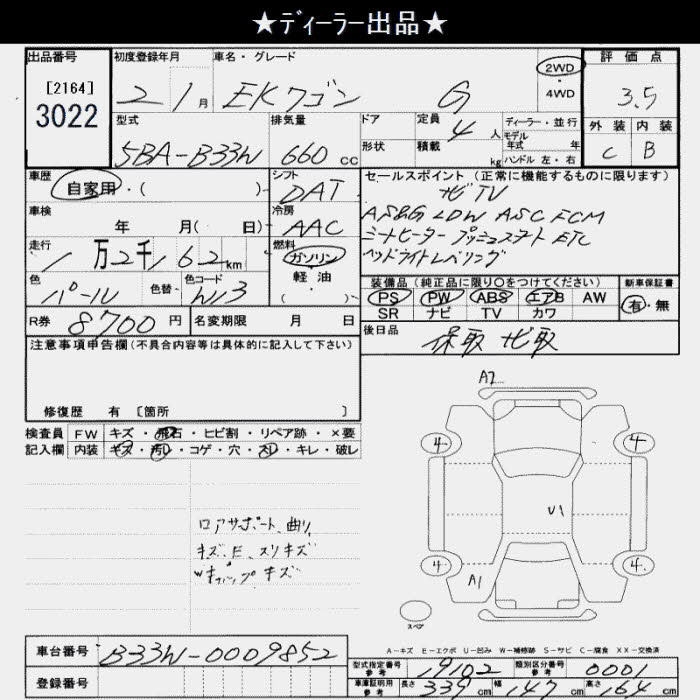 ★ディーラー出品★
出品番号 初度登録年月 車名・グレード 2WD ・ 4WD 評価点
[2164] 3022 2年 1月 EKワゴン G 3.5
型式 排気量 ドア 定員 ディーラー・並行 外装 内装
5BA-B33W 660 cc 形状 積載 4人 kg モデル年式 年 ハンドル 左・右 C B
車歴 シフト セールスポイント (正常に機能するものに限ります)
自家用・( ) DAT ナビTV
車検 冷房 AS&G LDW ASC FCM
年 月( 日) AAC シートヒーター プッシュスタート ETC
走行 燃料 ヘッドライトレベリング
1万2千162km ガソリン 軽・油 ( )
色 色替 色コード 装備品 (純正品に限り○をつけてください) 新車保証書
パール W13 PS PW ABS エアB AW 有・無
SR ナビ TV カワ
R券 8700円 名変期限 月 日 後日品
保取 ナビ取
注意事項申告欄(不具合内容等は具体的に記入して下さい)
修復歴 有 [箇所 ]
検査員 FW キズ・飛石・ヒビ割・リペア跡・×要
記入欄 内装 キズ・汚レ・コゲ・穴・スレ・キレ・破レ
ロアサポート曲り
キズ、E、スリキズ
Wキャップキズ
A2
4 4
U1
4 4
A1
スペア
A-キズ E-エクボ U-凹み W-補修跡 S-サビ C-腐食 XX-交換済
車台番号 B33W-0009852 型式指定番号 参考 19102 類別区分番号 参考 0001
登録番号 車庫証明用 参考 長さ 339cm 幅 147cm 高さ 164cm